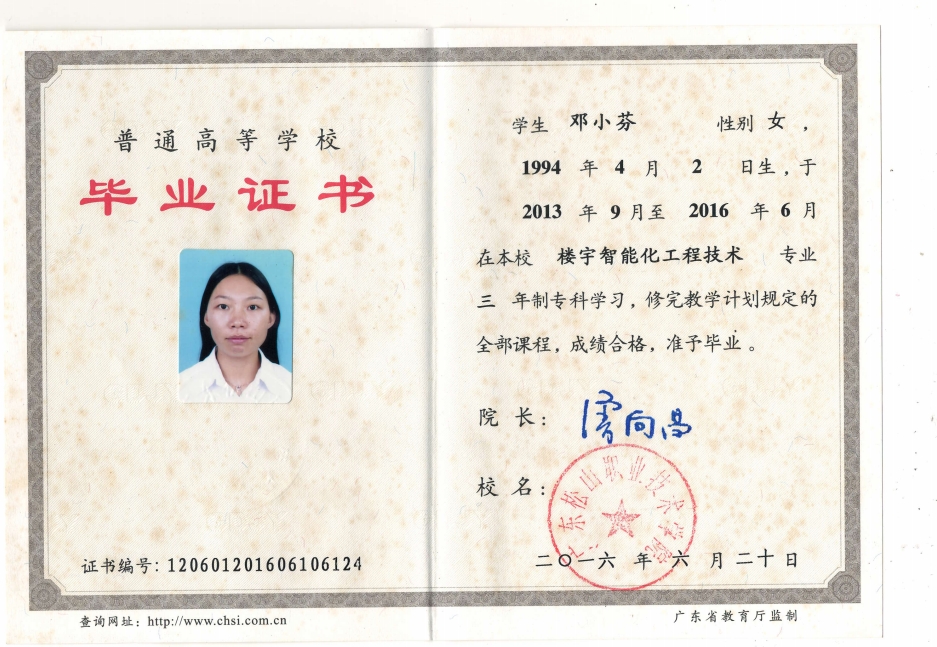 普通高等学校
毕业证书
证书编号：120601201606106124
查询网址：http://www.chsi.com.cn
学生 邓小芬 性别 女，
1994 年 4 月 2 日生，于
2013 年 9 月至 2016 年 6 月
在本校 楼宇智能化工程技术 专业
三 年制专科学习，修完教学计划规定的
全部课程，成绩合格，准予毕业。
院 长：
校 名：
广东松山职业技术学院
二〇一六 年 六 月 二十 日
广东省教育厅监制